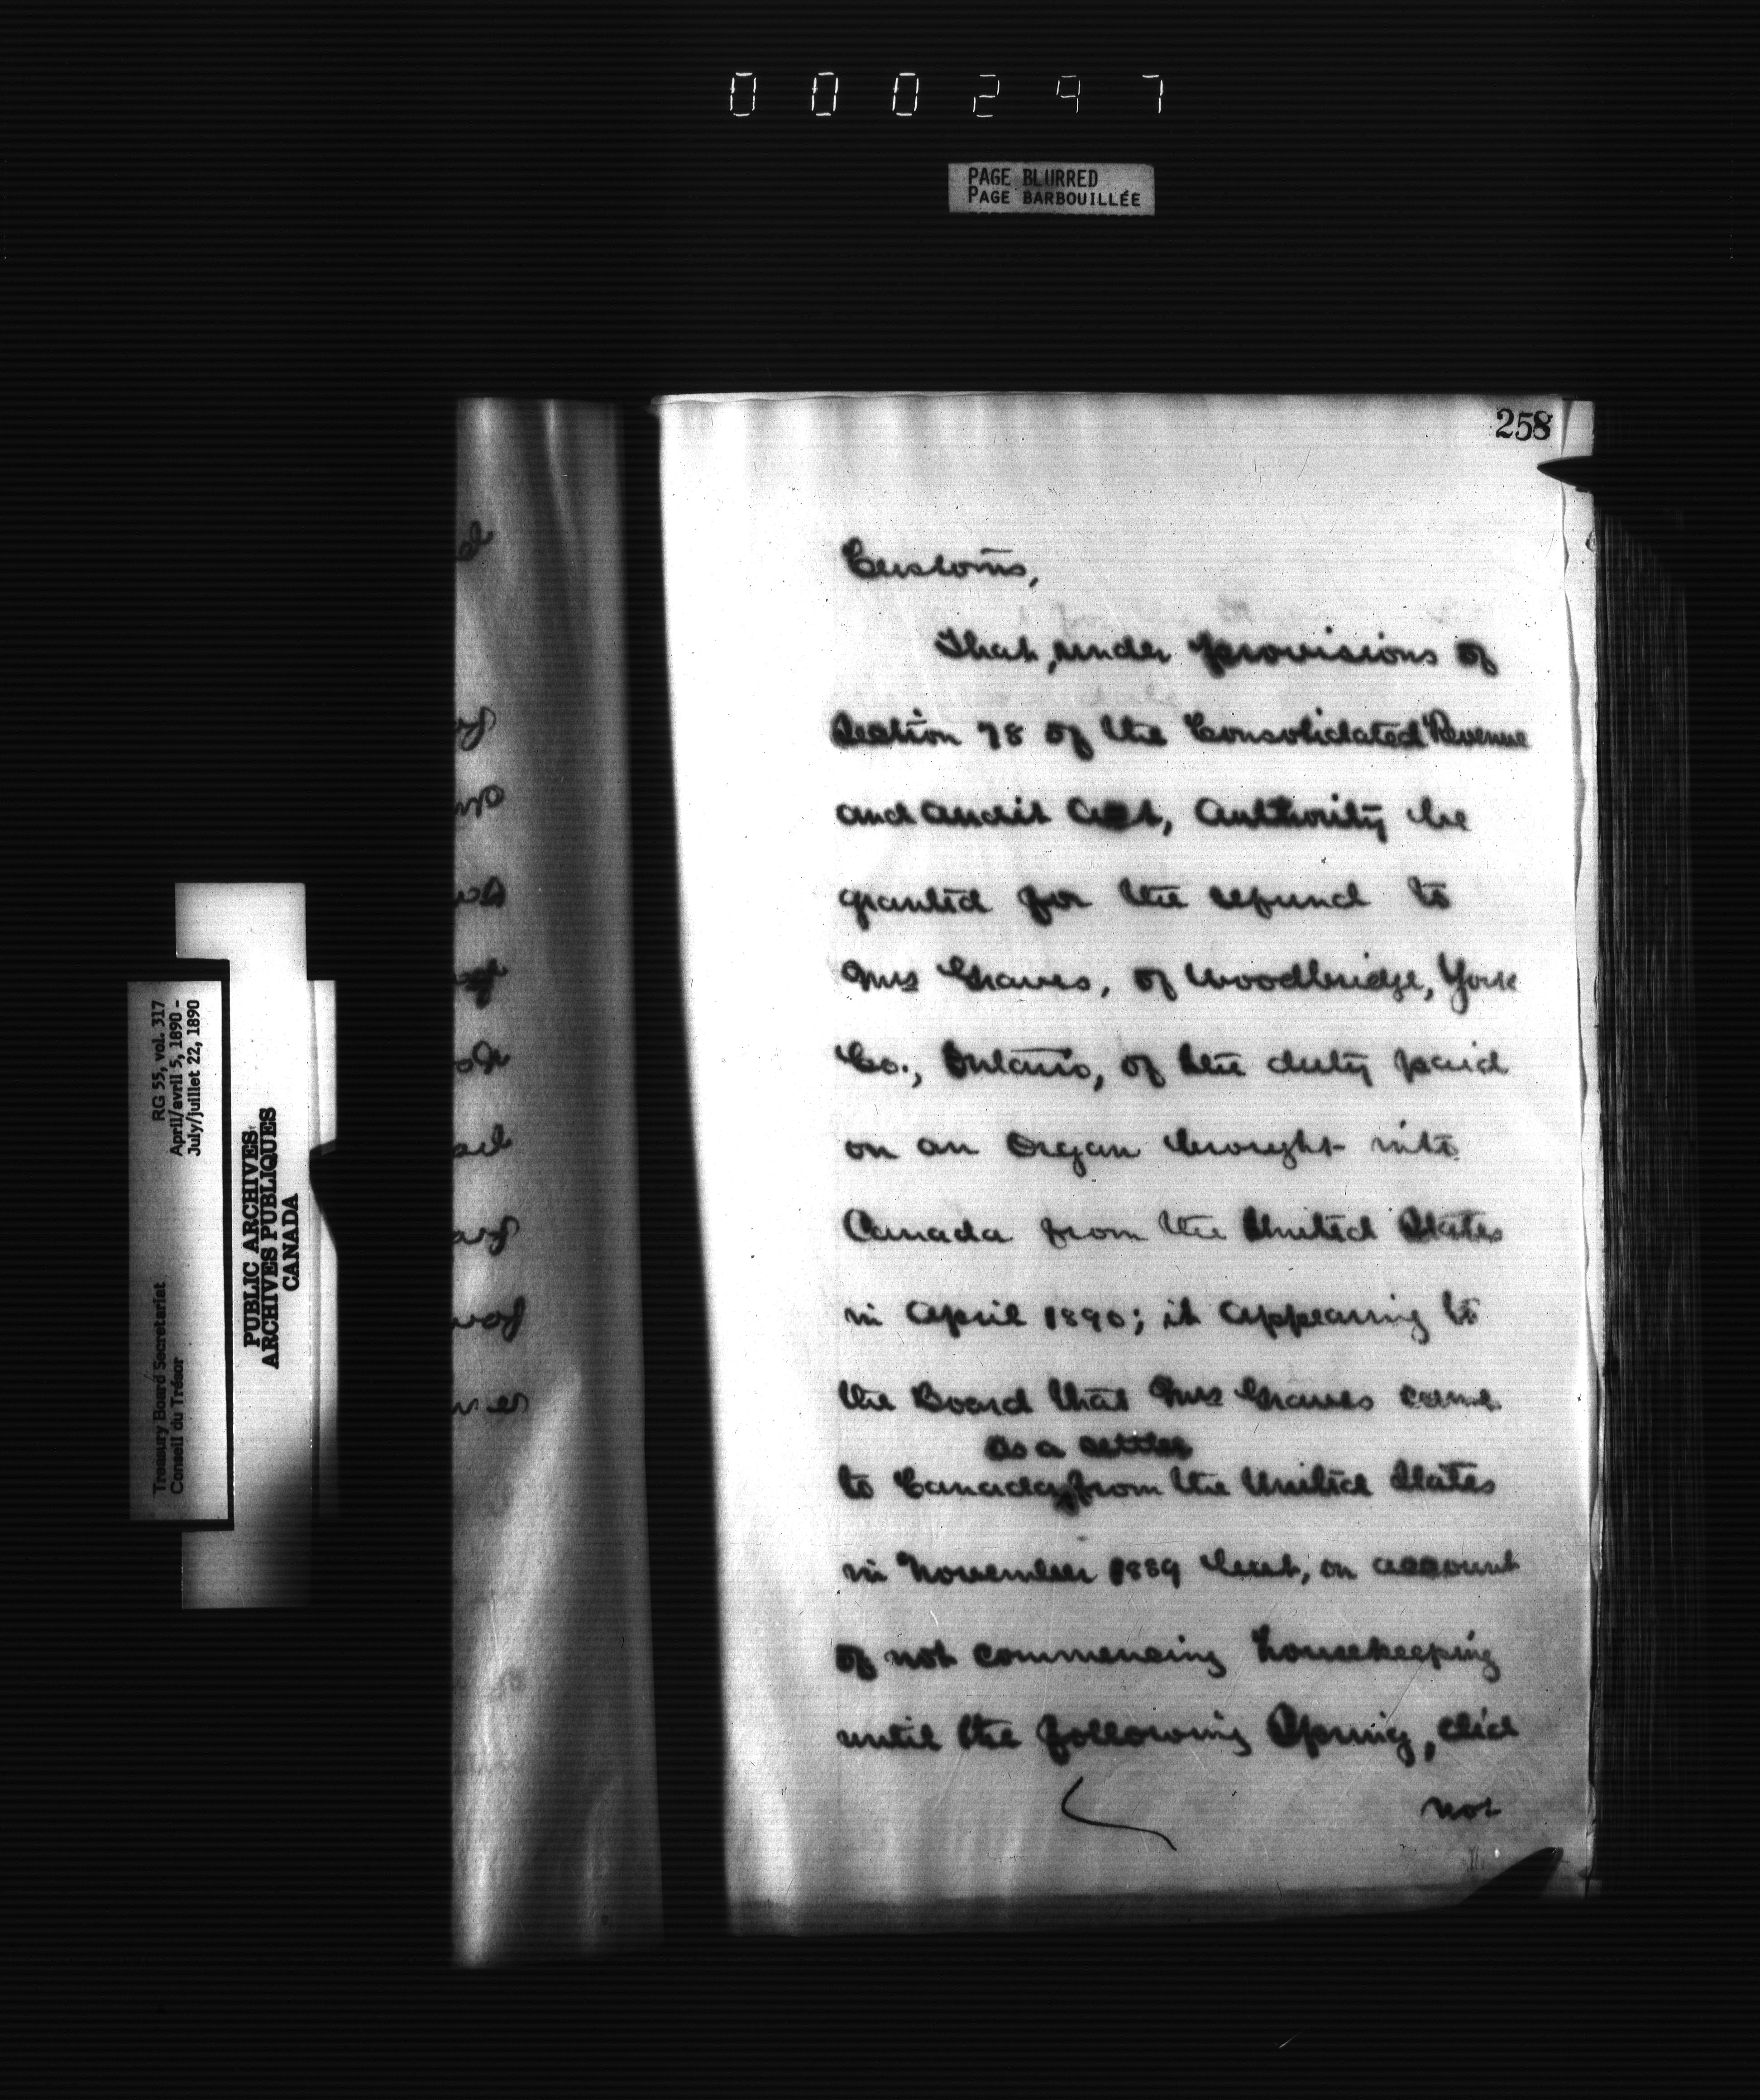 000297
PAGE BLURRED
PAGE BARBOUILLÉE
258
Customs,
That, under provisions of
Section 78 of the Consolidated Revenue
and Audit Act, Authority be
granted for the refund to
Mrs Graves, of Woodbridge, York
Co., Ontario, of the duty paid
on an Organ brought into
Canada from the United States
in April 1890; it appearing to
the Board that Mrs Graves came
as a settler
to Canada from the United States
in November 1889 but, on account
of not commencing housekeeping
until the following Spring, did
not
RG 55, vol. 317
April/avril 5, 1890 -
July/juillet 22, 1890
Treasury Board Secretariat
Conseil du Trésor
PUBLIC ARCHIVES
ARCHIVES PUBLIQUES
CANADA